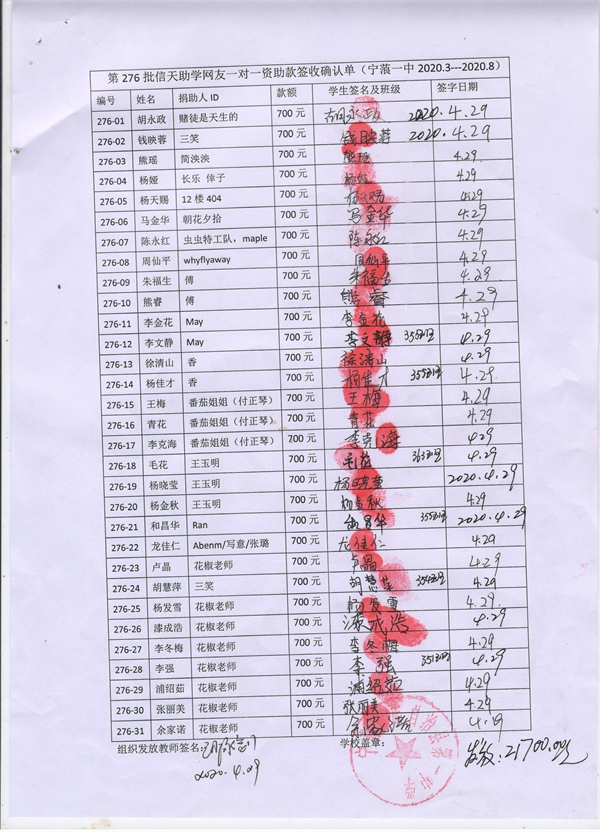 第 276 批信天助学网友一对一资助款签收确认单（宁蒗一中 2020.3---2020.8）
编号 姓名 捐助人 ID 款额 学生签名及班级 签字日期
276-01 胡永政 赌徒是天生的 700 元 胡永政 2020.4.29
276-02 钱映蓉 三笑 700 元 钱映蓉 2020.4.29
276-03 熊瑶 简泱泱 700 元 熊瑶 4.29
276-04 杨娅 长乐 倖子 700 元 杨娅 4.29
276-05 杨天赐 12 楼 404 700 元 杨天赐 4.29
276-06 马金华 朝花夕拾 700 元 马金华 4.29
276-07 陈永红 虫虫特工队，maple 700 元 陈永红 4.29
276-08 周仙平 whyflyaway 700 元 周仙平 4.29
276-09 朱福生 傅 700 元 朱福生 4.29
276-10 熊睿 傅 700 元 熊睿 4.29
276-11 李金花 May 700 元 李金花 4.29
276-12 李文静 May 700 元 李文静 355班 4.29
276-13 徐清山 香 700 元 徐清山 4.29
276-14 杨佳才 香 700 元 杨佳才 355班 4.29
276-15 王梅 番茄姐姐（付正琴） 700 元 王梅 4.29
276-16 青花 番茄姐姐（付正琴） 700 元 青花 4.29
276-17 李克海 番茄姐姐（付正琴） 700 元 李克海 4.29
276-18 毛花 王玉明 700 元 毛花 363班 4.29
276-19 杨晓莹 王玉明 700 元 杨晓莹 2020.4.29
276-20 杨金秋 王玉明 700 元 杨金秋 4.29
276-21 和昌华 Ran 700 元 和昌华 355班 2020.4.29
276-22 龙佳仁 Abenm/写意/张璐 700 元 龙佳仁 4.29
276-23 卢晶 花椒老师 700 元 卢晶 4.29
276-24 胡慧萍 三笑 700 元 胡慧萍 4.29
276-25 杨发雪 花椒老师 700 元 杨发雪 4.29
276-26 漆成浩 花椒老师 700 元 漆成浩 4.29
276-27 李冬梅 花椒老师 700 元 李冬梅 4.29
276-28 李强 花椒老师 700 元 李强 4.29
276-29 浦绍茹 花椒老师 700 元 浦绍茹 4.29
276-30 张丽美 花椒老师 700 元 张丽美 4.29
276-31 余家诺 花椒老师 700 元 余家诺 4.29
组织发放教师签名： 学校盖章： 21700.00元
2020.4.29